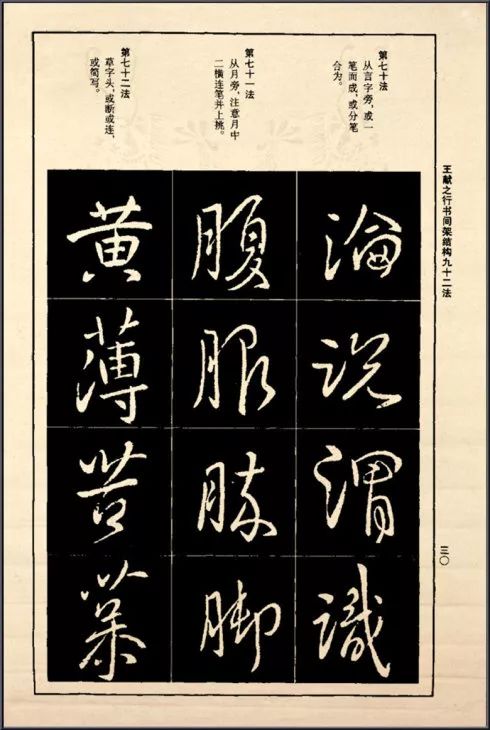 王献之行书间架结构九十二法
三〇
第七十法
从言字旁，或一
笔而成，或分笔
合为。
論
説
謂
識
第七十一法
从月旁，注意月中
二横连笔并上挑。
腹
服
脚
第七十二法
草字头，或断或连，
或简写。
黄
薄
苦